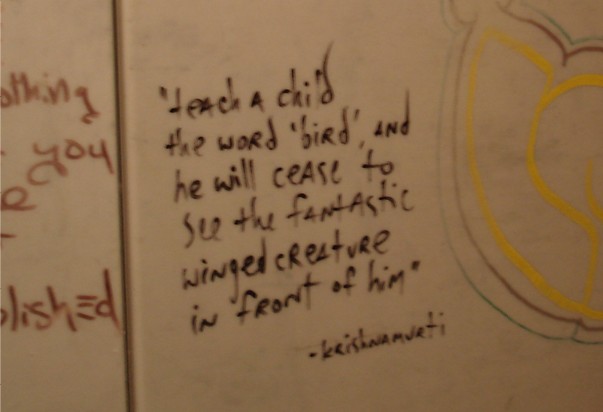 othing
you
e
"teach a child
the word 'bird', and
he will cease to
see the fantastic
winged creature
in front of him"
-krishnamurti
lished